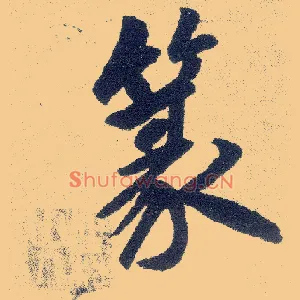 篆
Shufawang.CN